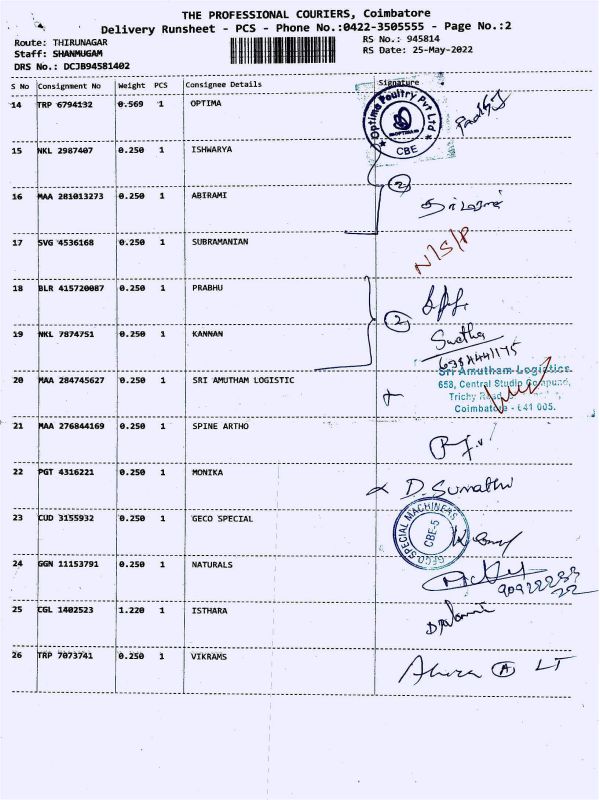 THE PROFESSIONAL COURIERS, Coimbatore
Delivery Runsheet - PCS - Phone No.:0422-3505555 - Page No.:2
Route: THIRUNAGAR
RS No.: 945814
Staff: SHANMUGAM
RS Date: 25-May-2022
DRS No.: DCJB94581402
S No Consignment No Weight PCS Consignee Details Signature
14 TRP 6794132 0.569 1 OPTIMA
Optima Poultry Pvt Ltd
CBE
15 NKL 2987407 0.250 1 ISHWARYA
2
16 MAA 281013273 0.250 1 ABIRAMI
17 SVG 4536168 0.250 1 SUBRAMANIAN
N/S/P
18 BLR 415720087 0.250 1 PRABHU
2
19 NKL 7874751 0.250 1 KANNAN
Swetha
20 MAA 284745627 0.250 1 SRI AMUTHAM LOGISTIC
Sri Amutham Logistics
658, Central Studio Compund,
Trichy Road,
Coimbatore - 641 005.
21 MAA 276844169 0.250 1 SPINE ARTHO
22 PGT 4316221 0.250 1 MONIKA
D. Sumathi
23 CUD 3155932 0.250 1 GECO SPECIAL
GECO SPECIAL MACHINERS
CBE-5
24 GGN 11153791 0.250 1 NATURALS
25 CGL 1402523 1.220 1 ISTHARA
26 TRP 7073741 0.250 1 VIKRAMS
A LT